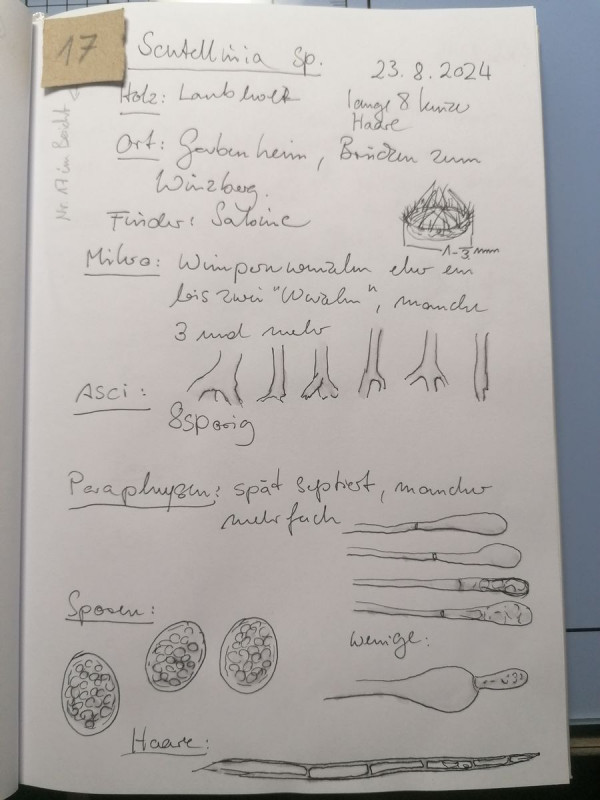 17
Scutellinia sp.
23.8.2024
Holz: Laubholz
lange & kurze
Haare
Ort: Garbenheim, Brücken zum
Winzberg.
Finder: Sabine
1-3mm
Mikro: Wimpernwurzeln eher ein
bis zwei "Wurzeln", manche
3 und mehr
Asci:
8sporig
Paraphysen: spät septiert, mancher
mehrfach
Sporen:
wenige:
Haare:
Nr. 17 im Bericht